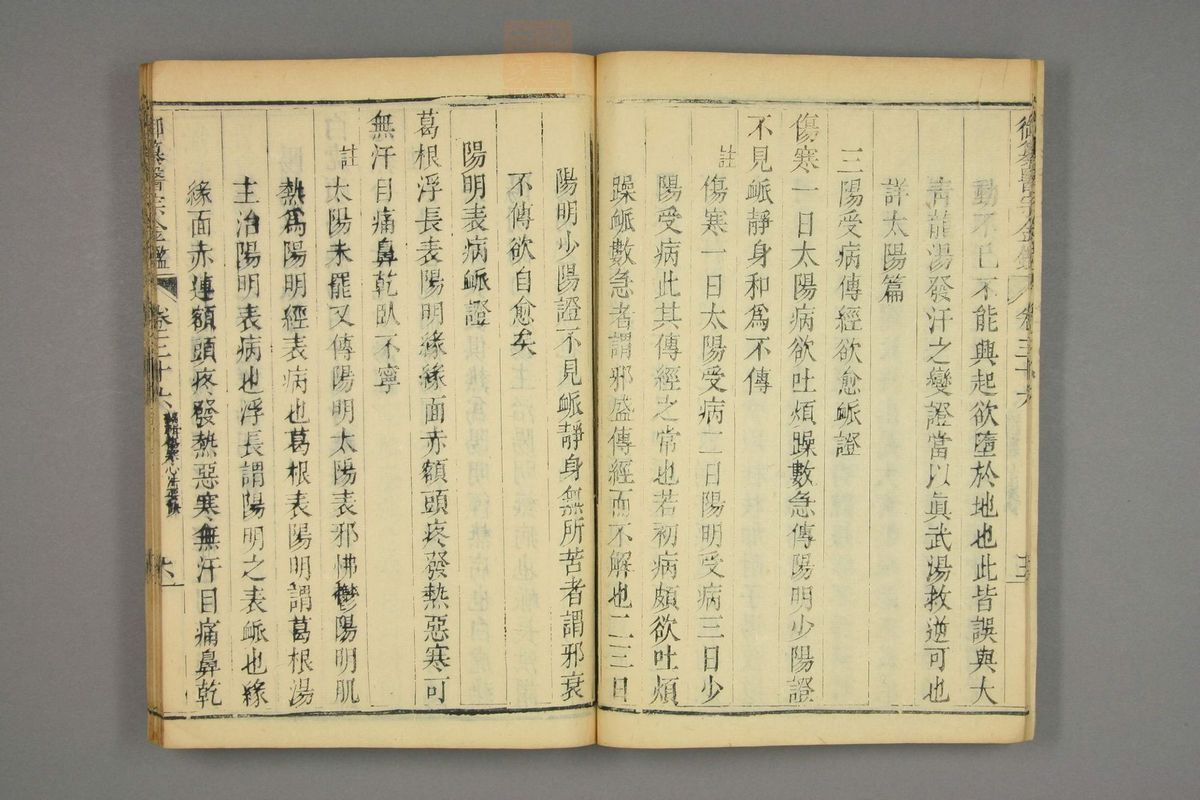 御纂醫宗金鑑 卷三十六
動不已不能興起欲墮於地也此皆誤與大
青龍湯發汗之變證當以眞武湯救逆可也
詳太陽篇
三陽受病傳經欲愈衇證
傷寒一日太陽病欲吐煩躁數急傳陽明少陽證
不見衇靜身和爲不傳
註傷寒一日太陽受病二日陽明受病三日少
陽受病此其傳經之常也若初病頗欲吐煩
躁衇數急者謂邪盛傳經而不解也二三日
陽明少陽證不見衇靜身無所苦者謂邪衰
不傳欲自愈矣
陽明表病衇證
葛根浮長表陽明緣緣面赤額頭疼發熱惡寒可
無汗目痛鼻乾臥不寧
註太陽未罷又傳陽明太陽表邪怫鬱陽明肌
熱爲陽明經表病也葛根表陽明謂葛根湯
主治陽明表病也浮長謂陽明之表衇也緣
緣面赤連額頭疼發熱惡寒無汗目痛鼻乾
御纂醫宗金鑑 卷三十六 六